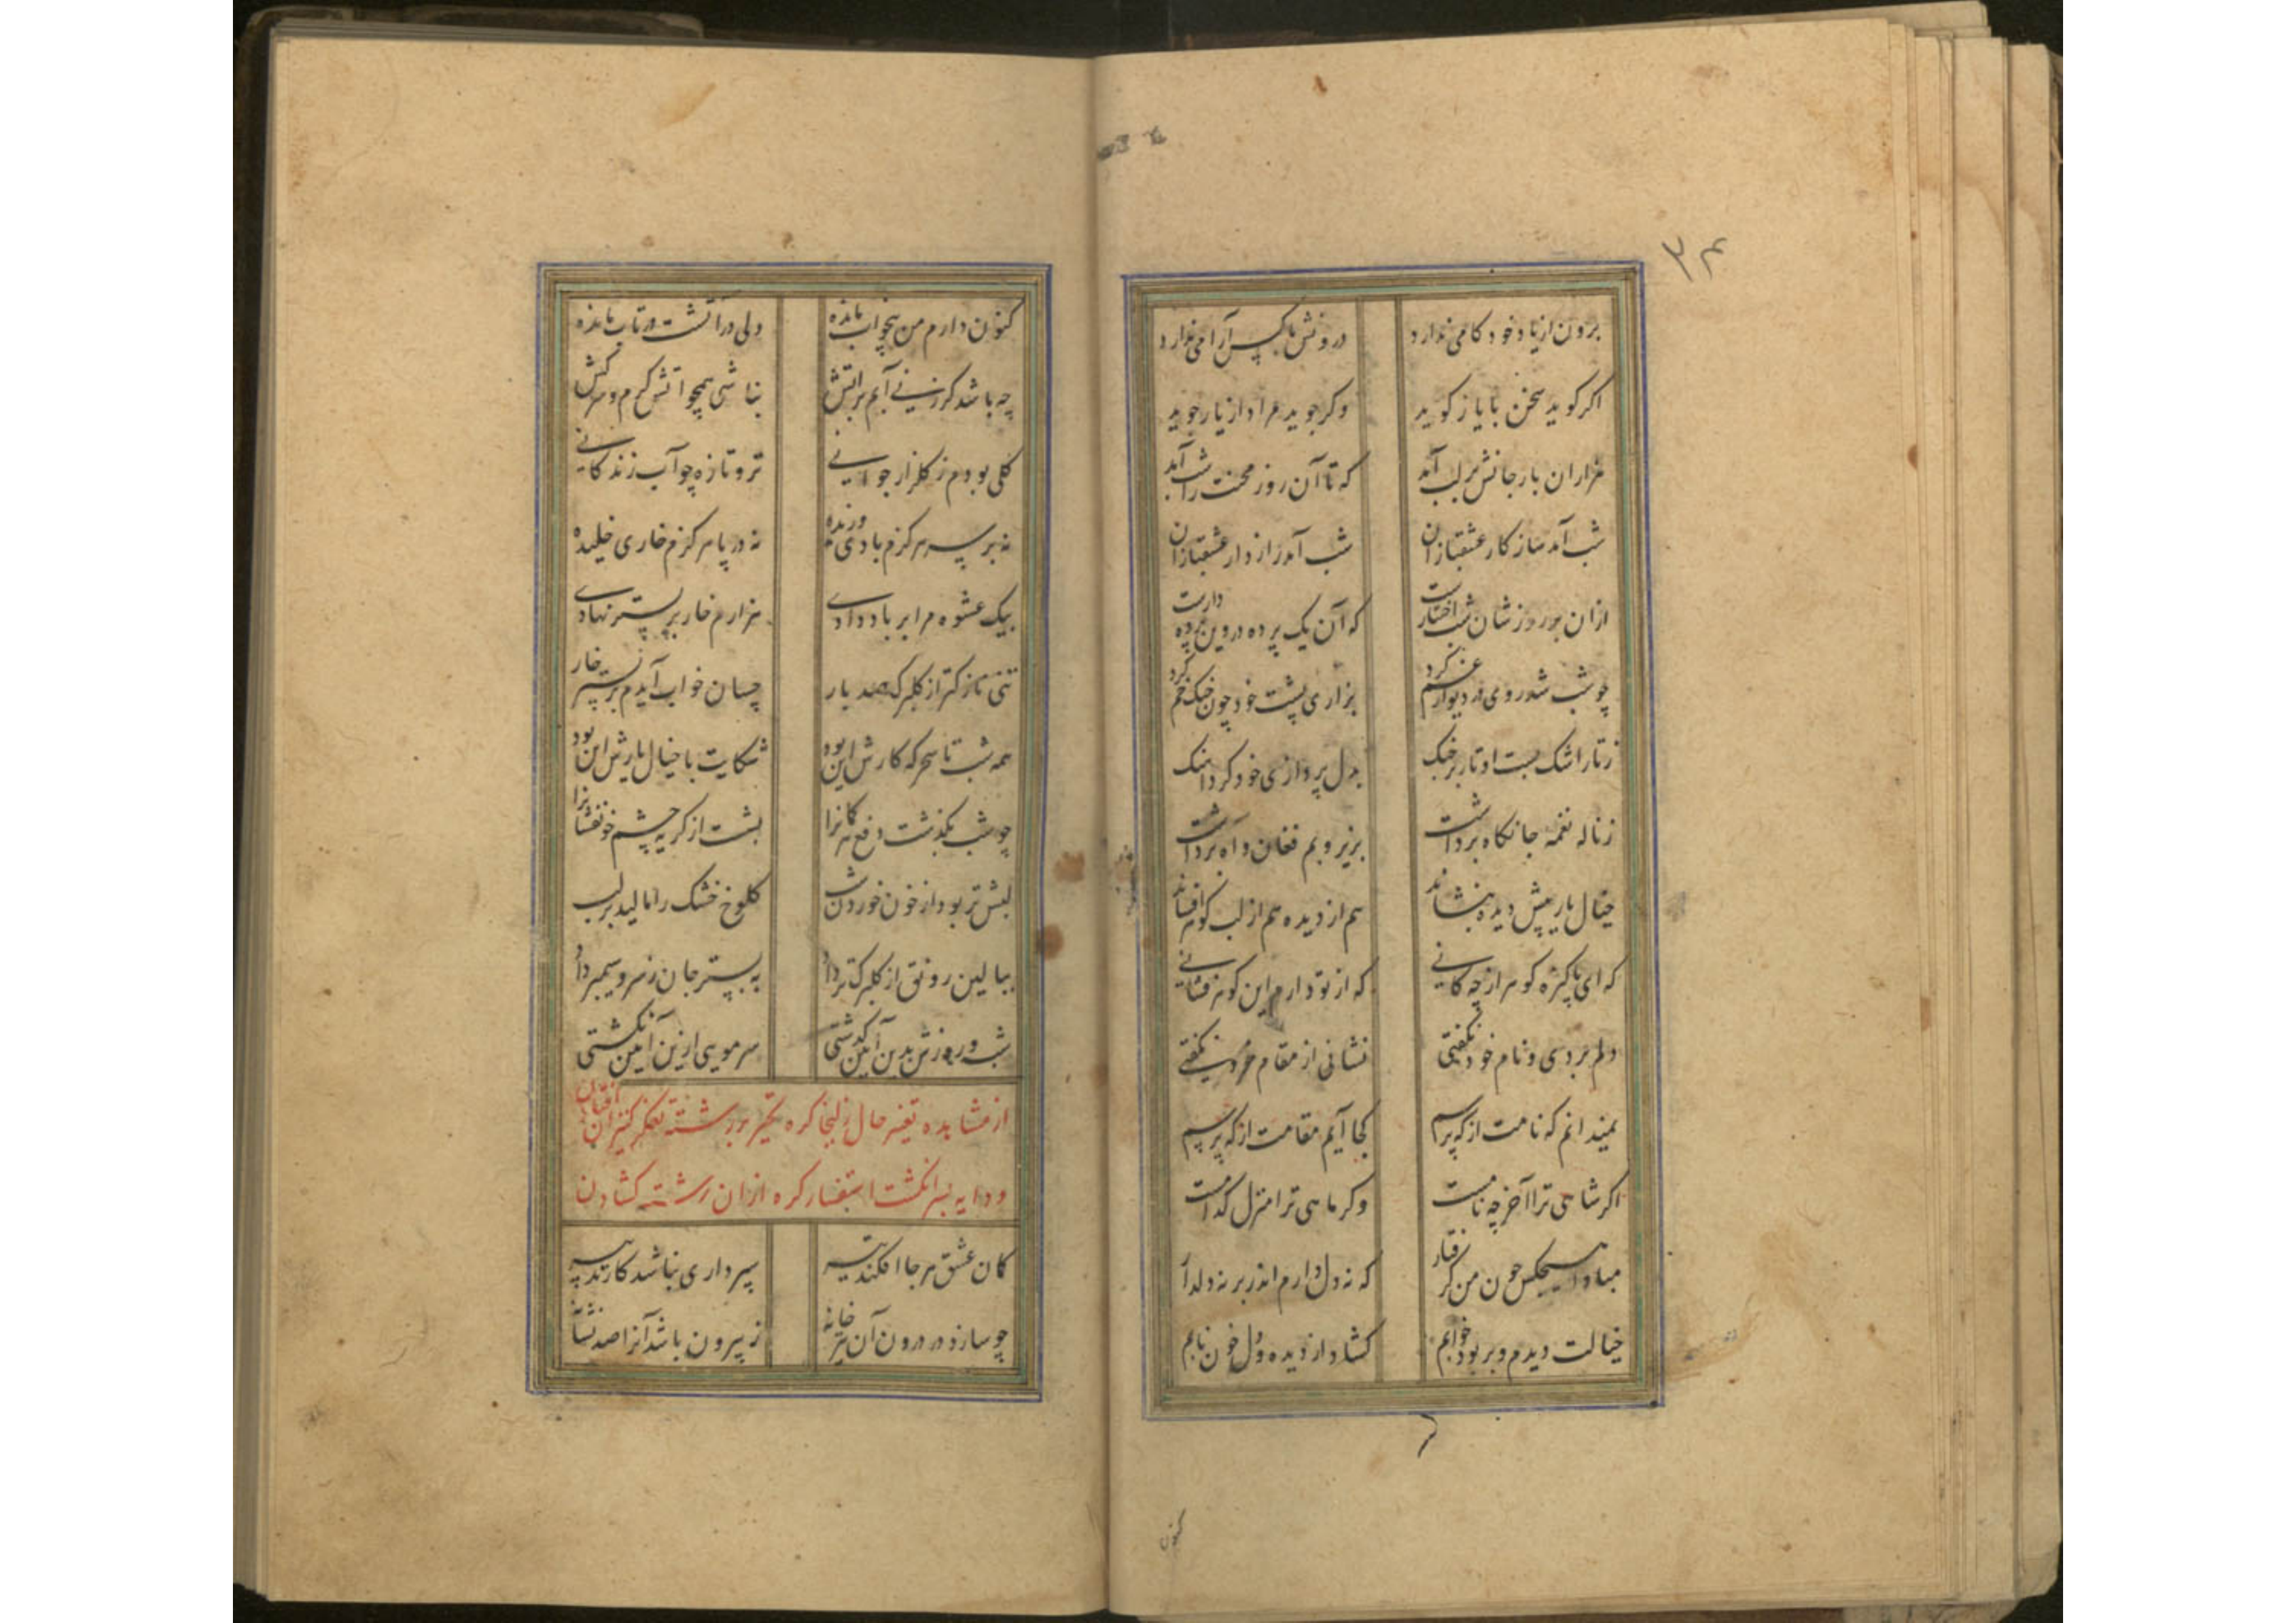 ۳۴
برون از یاد خود کامی ندارد درونش با کس آرامی ندارد
اگر گوید سخن با یار گوید وگر جوید مراد از یار جوید
هزاران بار جانش بر لب آمد که تا آن روز محنت را شب آمد
شب آمد ساز کار عشقبازان شب آمد رازدار عشقبازان
ازان بر روز شان شب اختیارست که آن یک پرده در وین پرده دارست
چو شب شد روی در دیوار غم کرد بزاری پشت خود چون چنگ خم کرد
ز تار اشک بست اوتار بر چنگ بدل پردازی خود کرد آهنگ
ز ناله نغمه جانکاه برداشت بزیر و بم فغان و آه برداشت
خیال یار پیش دیده بنشاند هم از دیده هم از لب گوهر افشاند
که ای پاکیزه گوهر از چه کانی که از تو دارم این گوهر فشانی
دلم بردی و نام خود نگفتی نشانی از مقام خود نگفتی
نمیدانم که نامت از که پرسم کجا آیم مقامت از که پرسم
اگر شاهی ترا آخر چه نامست وگر ماهی ترا منزل کدامست
مبادا هیچکس چون من گرفتار که نه دل دارم اندر بر نه دلدار
خیالت دیدم و بربود خوابم گشاد از دیده و دل خون نابم
کنون
کنون دارم من بیخواب مانده دلی در آتشت در تاب مانده
چه باشد گر زنی آبم بر آتش نباشی همچو آتش گرم و سرکش
گلی بودم ز گلزار جوانی تر و تازه چو آب زندگانی
نه بر سر هرگزم بادی وزیده نه در پا هرگزم خاری خلیده
بیک عشوه مرا بر باد دادی هزارم خار بر بستر نهادی
تنی نازکتر از گلبرگ صد بار چسان خواب آیدم بر بستر خار
همه شب تا سحرگه کارش این بود شکایت با خیال یارش این بود
چو شب بگذشت دفع هر گمانرا بشست از گریه چشم خونفشانرا
لبش تر بود از خون خوردن شب کلوخ خشک را مالید بر لب
ببالین رونق از گلبرگ تر داد به بستر جان ز سرو سیمبر داد
شب و روزش بدین آیین گذشتی سر مویی ازین آیین نگشتی
از مشاهده تغیر حال زلیخا گره تحیر بر رشته تفکر کنیزان افتادن
و دایه بسر انگشت استفسار گره ازان رشته گشادن
کمان عشق هر جا افکند تیر سپرداری نباشد کار تدبیر
چو سازد در درون آن تیر خانه ز بیرون باشد آنرا صد نشانه